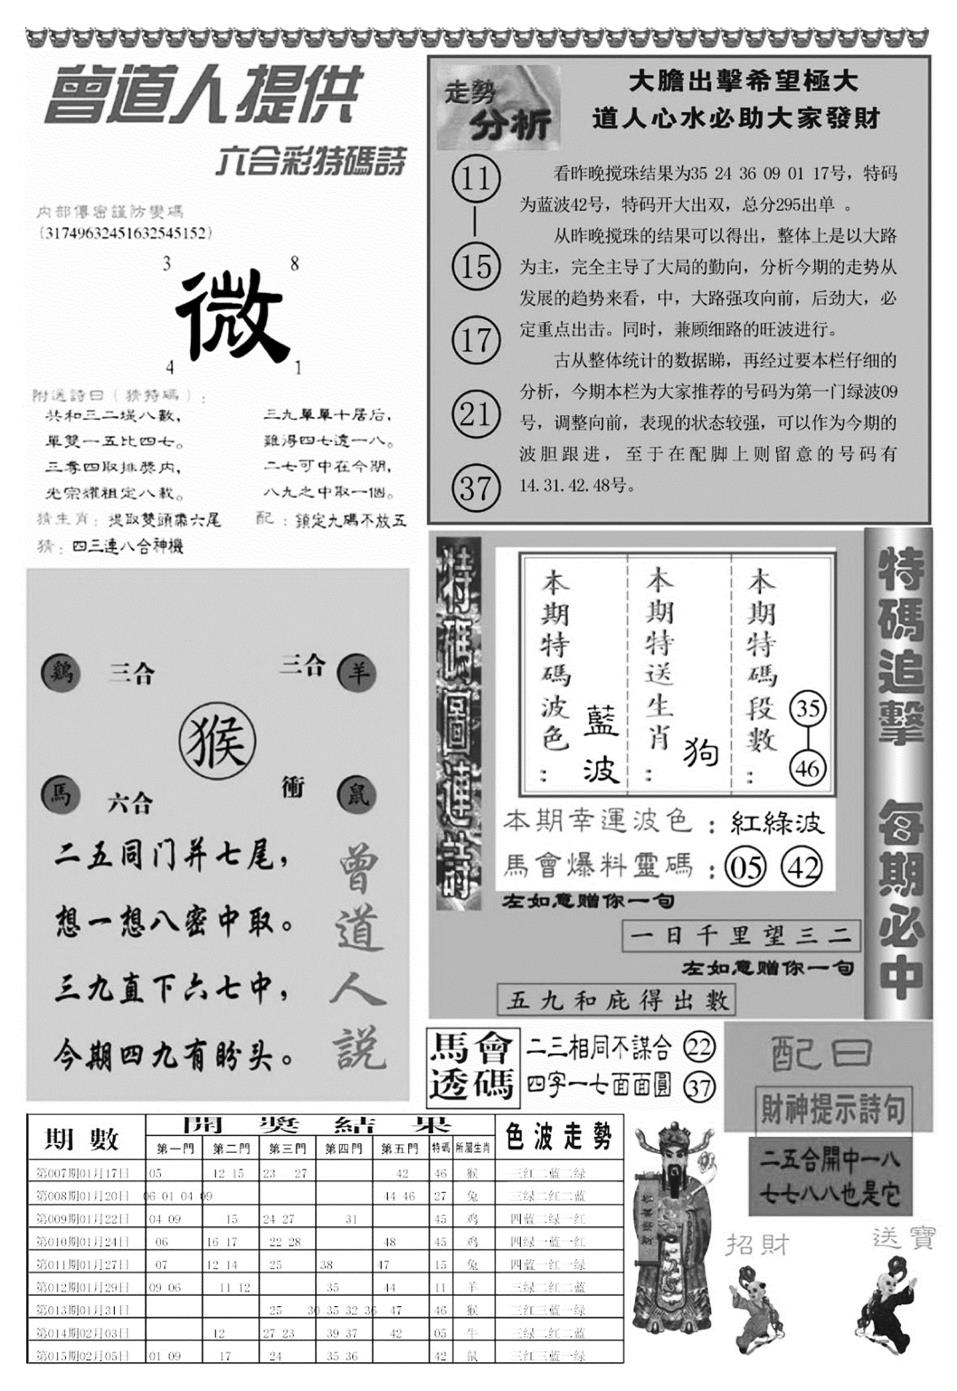 曾道人提供
六合彩特碼詩
内部傳密謹防變碼
（31749632451632545152）
3 8
微
4 1
附送詩曰（猜特碼）：
共和三二堤八數，
單雙一五比四七。
三零四取排膝内，
光宗耀祖定八載。
三九單單十居后，
難得四七遠一八。
二七可中在今期，
八九之中取一個。
猜生肖：提取雙頭霜六尾
配：鎖定九碼不放五
猜：四三連八合神機
走勢
分析
大膽出擊希望極大
道人心水必助大家發財
11
15
17
21
37
看昨晚搅珠结果为35 24 36 09 01 17号，特码
为蓝波42号，特码开大出双，总分295出单 。
从昨晚搅珠的结果可以得出，整体上是以大路
为主，完全主导了大局的動向，分析今期的走势从
发展的趋势来看，中，大路强攻向前，后劲大，必
定重点出击。同时，兼顾细路的旺波进行。
古从整体统计的数据睇，再经过要本栏仔细的
分析，今期本栏为大家推荐的号码为第一门绿波09
号，调整向前，表现的状态较强，可以作为今期的
波胆跟进，至于在配脚上则留意的号码有
14.31.42.48号。
鷄 三合
三合 羊
猴
馬 六合
衝 鼠
二五同门并七尾，
想一想八密中取。
三九直下六七中，
今期四九有盼头。
曾道人説
特碼圖連詩
本期特碼波色：
藍波
本期特送生肖：
狗
本期特碼段數：
35
46
本期幸運波色：紅綠波
馬會爆料靈碼：05 42
左如意赠你一句
一日千里望三二
左如意赠你一句
五九和庇得出數
特碼追擊 每期必中
馬會
透碼
二三相同不謀合 22
四字一七面面圓 37
配曰
財神提示詩句
二五合開中一八
七七八八也是它
招財
送寶
期數 開獎結果 色波走勢
第一門 第二門 第三門 第四門 第五門 特碼 所屬生肖
第007期01月17日 05 12 15 23 27 42 46 猴 三红二蓝二绿
第008期01月20日 06 01 04 09 44 46 27 兔 三绿二红二蓝
第009期01月22日 04 09 15 24 27 31 45 鸡 四蓝二绿一红
第010期01月24日 06 16 17 22 28 48 45 鸡 四绿一蓝一红
第011期01月27日 07 12 14 25 38 47 15 兔 四蓝一红一绿
第012期01月29日 09 06 11 12 35 44 11 羊 三绿二红二蓝
第013期01月31日 25 30 35 32 36 47 46 猴 三红三蓝一绿
第014期02月03日 12 27 23 39 37 42 05 牛 三绿二红二蓝
第015期02月05日 01 09 17 24 35 36 42 鼠 三红三蓝一绿